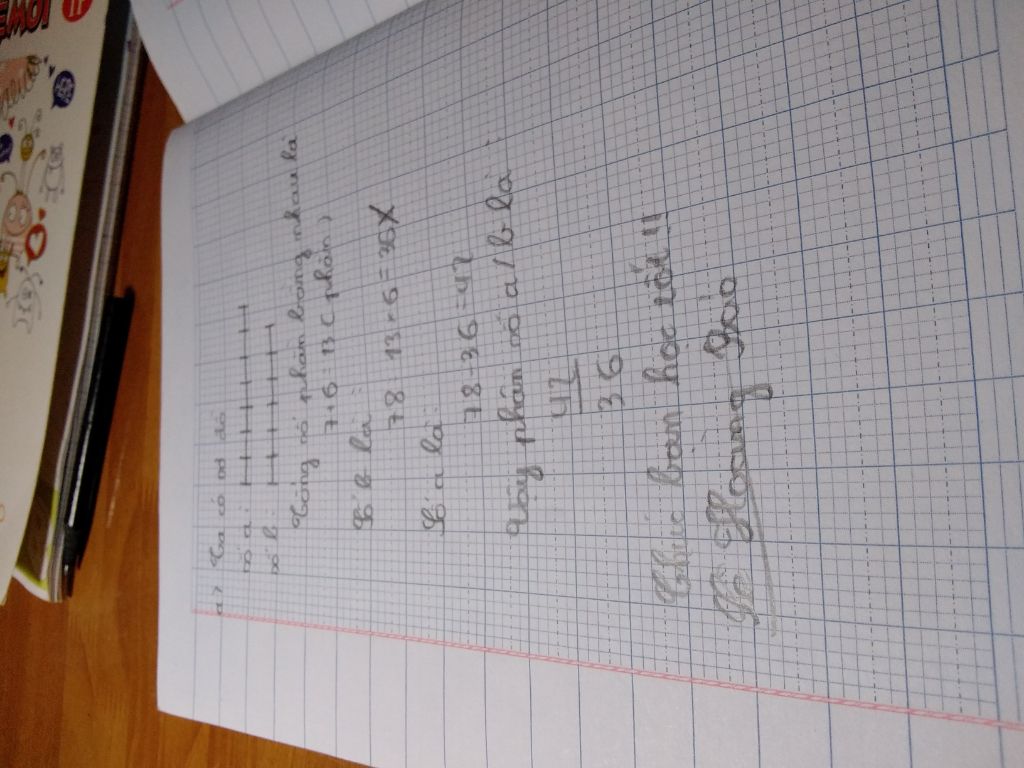 a) Ta có sơ đồ
số a:
số b:
Tổng số phần bằng nhau là
7+6=13 ( phần )
Số b là:
78:13×6=36
Số a là:
78-36=42
Vậy phân số a/b là:
42
36
Chúc bạn học tốt !!
Hoàng Bảo